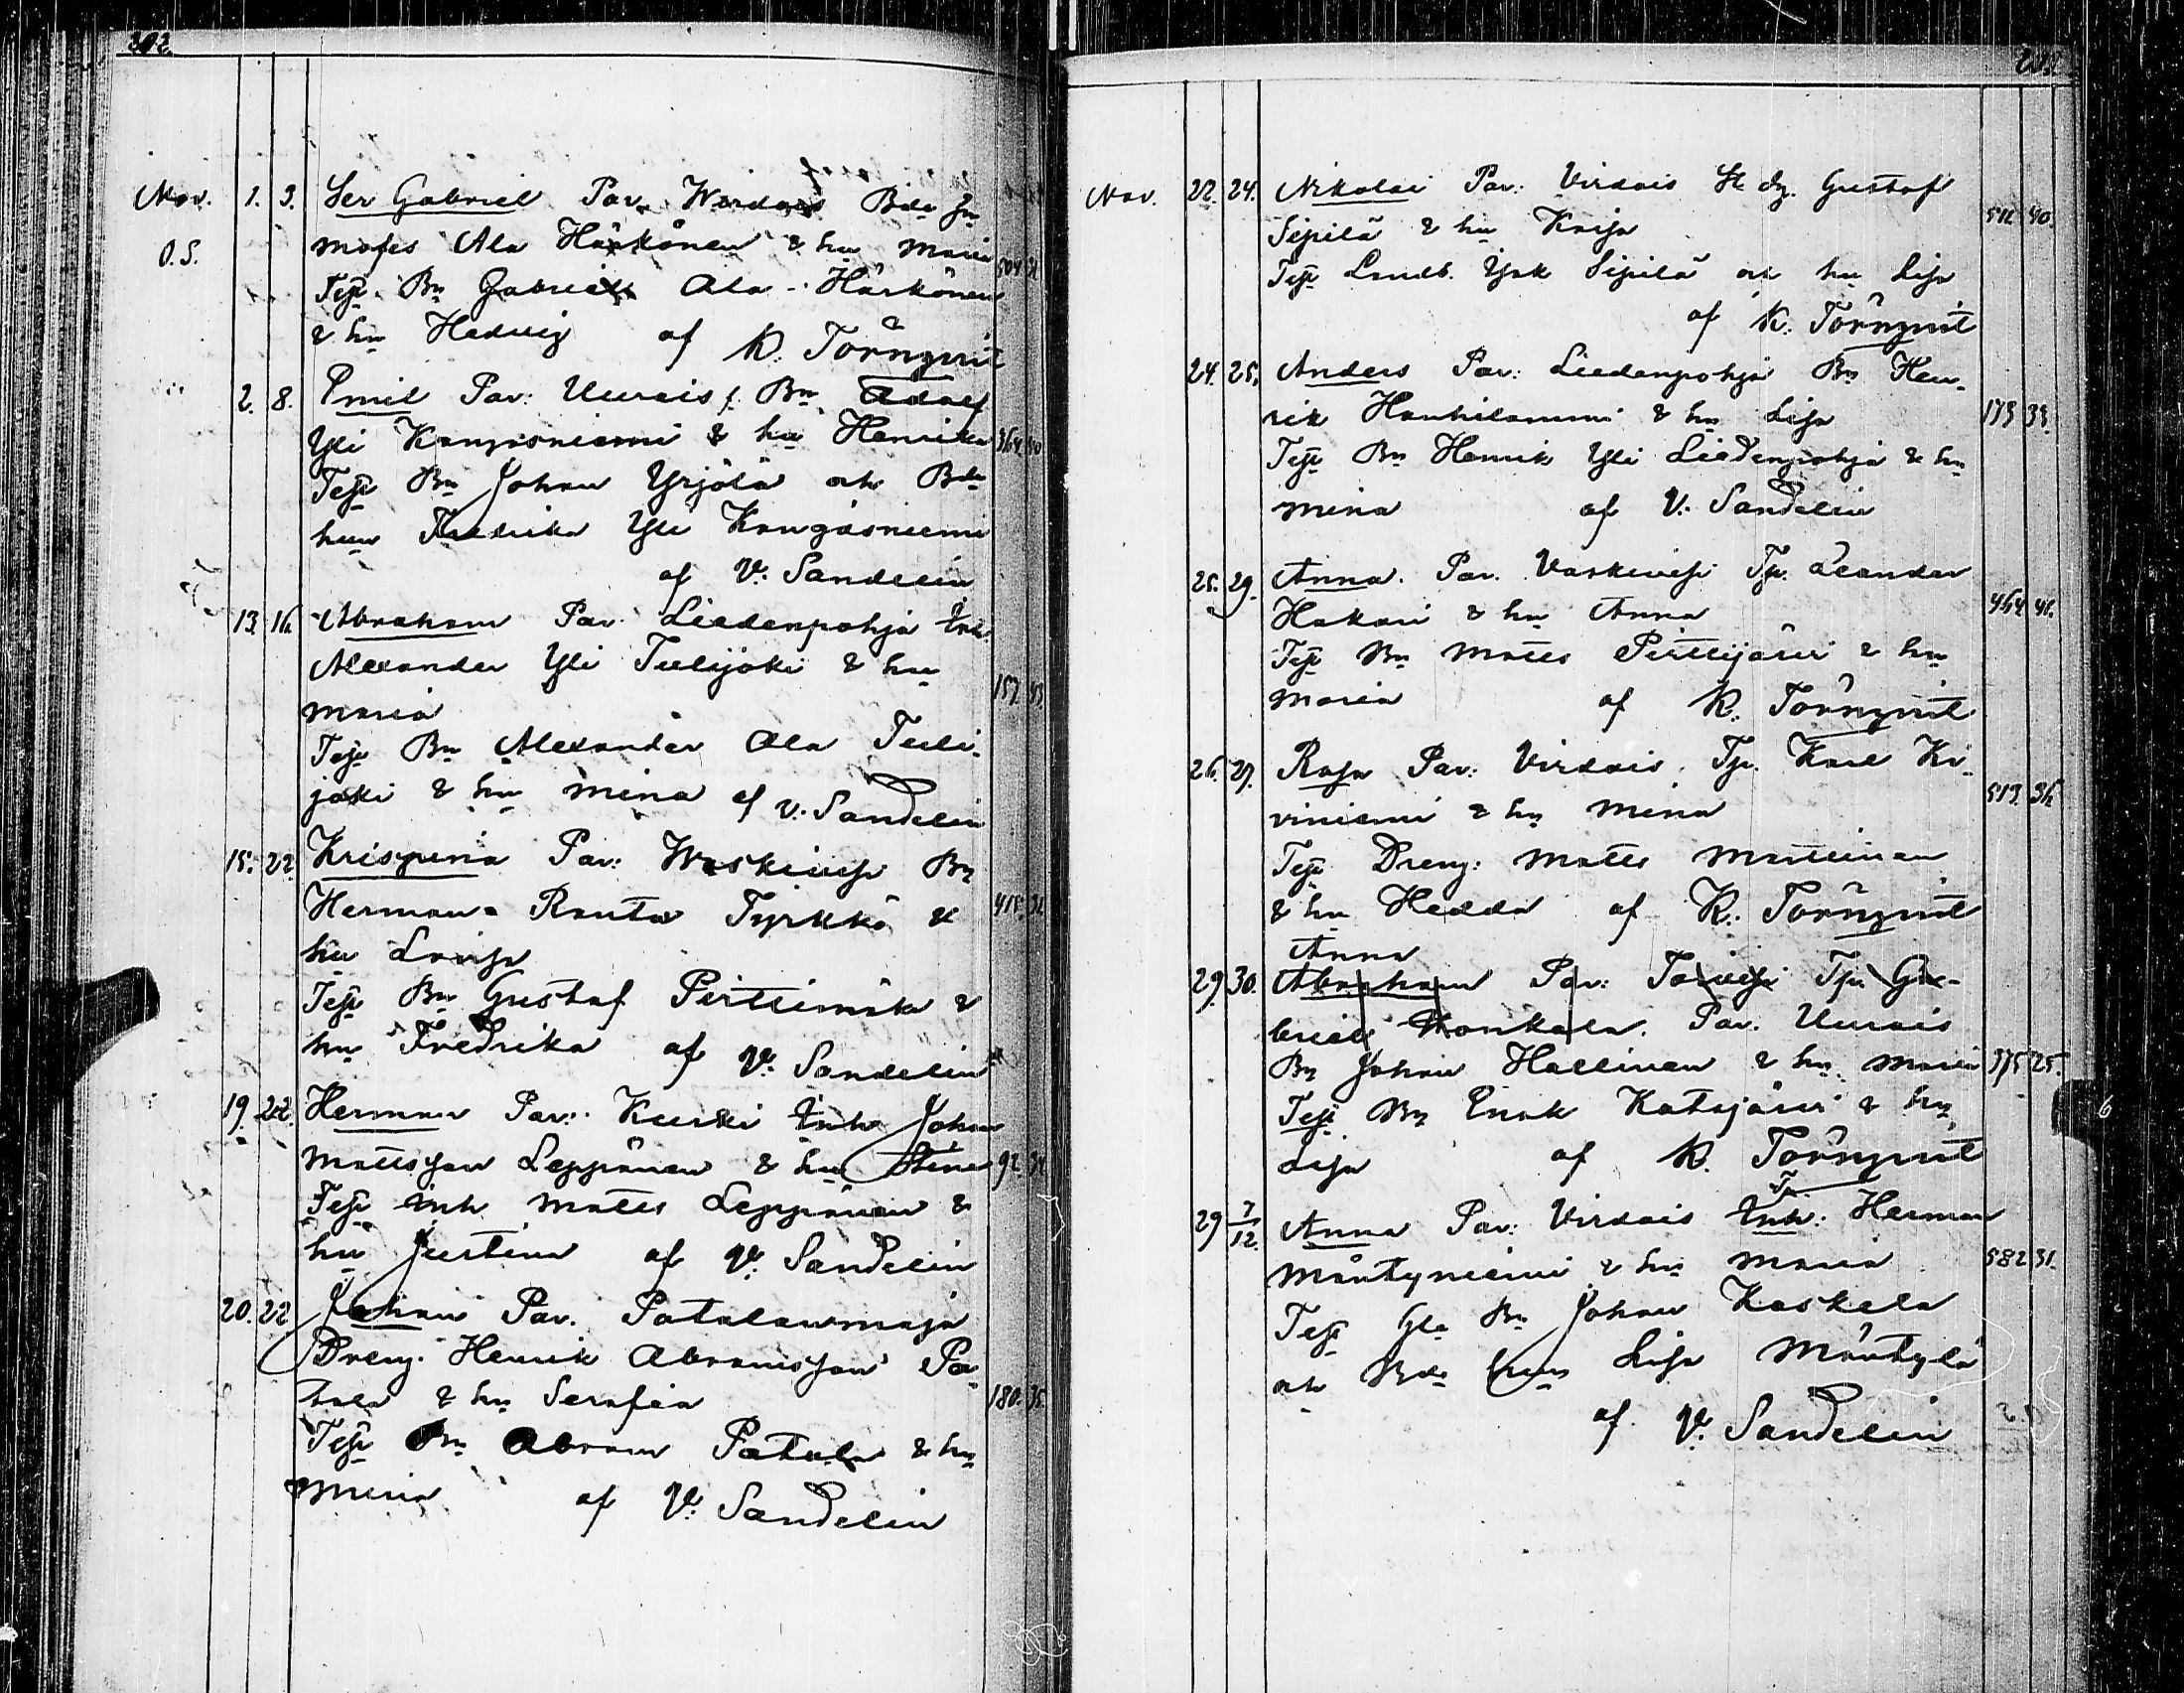 202.
Nov. 1. 3. Ser Gabriel Par. Wirdois Bde Sn
O.S. mattes Ala Härkönen & hu Maria 504 31
Test. Bn Gabriel Ala-Härkönen
& hu Hedvig af K. Törnqvist
2. 8. Emil Par: Uurais f. Bn Adolf
Yli Kangasniemi & hu Henrika 364 40
Test Bn Johan Yrjölä och Bde
hun Fredrika Yli Kangasniemi
af V. Sandelin
13. 16. Abraham Par. Liedenpohja Inh.
Alexander Yli Teelijoki & hu
Maria 157. 43
Test Bn Alexander Ala Teeli-
joki & hu Mina af V. Sandelin
15. 22. Krispina Par: Waskivesi Bn
Herman Ranta Tyrkkö & 415. 32
hu Lovisa
Test Bn Gustaf Perttimäki &
hu Fredrika af V. Sandelin
19. 22. Herman Par: Kurki Inh Johan
Mattsson Leppänen & hu Stina 92. 34
Test Inh Mattes Leppänen &
hu Justina af V. Sandelin
20. 22 Johan Par. Patalanmaja
Dreng. Henrik Abramsson Pa-
tala & hu Serafia 180. 35
Test Bn Abram Patala & hu
Maria af V. Sandelin
Nov. 22. 24. Nikolai Par: Virdois St dg. Gustaf
Sipilä & hu Kaisa 511. 40.
Test Lmdb. Isak Sipilä och hu Lisa
af K. Törnqvist
24. 25. Anders Par: Liedenpohja Bn Hen-
rik Hauhilammi & hu Lisa 173 33.
Test Bn Henrik Yli Liedenpohja & hu
Mina af V. Sandelin
25. 29. Anna. Par. Vaskivesi Tp. Leander
Hakari & hu Anna 454 41.
Test Bn Mattes Perttijärvi & hu
Maria af K. Törnqvist
26. 27. Rosa Par: Virdois Tp. Karl Ki-
viniemi & hu Mina 513. 36
Test Dreng: Mattes Marttinen
& hu Hedda af K. Törnqvist
Anna
29. 30. Abraham Par: Toivesi Tp. Ga-
briel Honkala. Par. Uurais
Bn Johan Hallinen & hu Maria 375 25.
Test Bn Enok Katajärvi & hu
Lisa af K. Törnqvist
Tp.
29 7/12. Anna Par: Virdois Inh: Herman
Mäntyniemi & hu Maria 582 31.
Test Gla Bn Johan Koskela
och Bde hun Lisa Mäntylä
af V. Sandelin